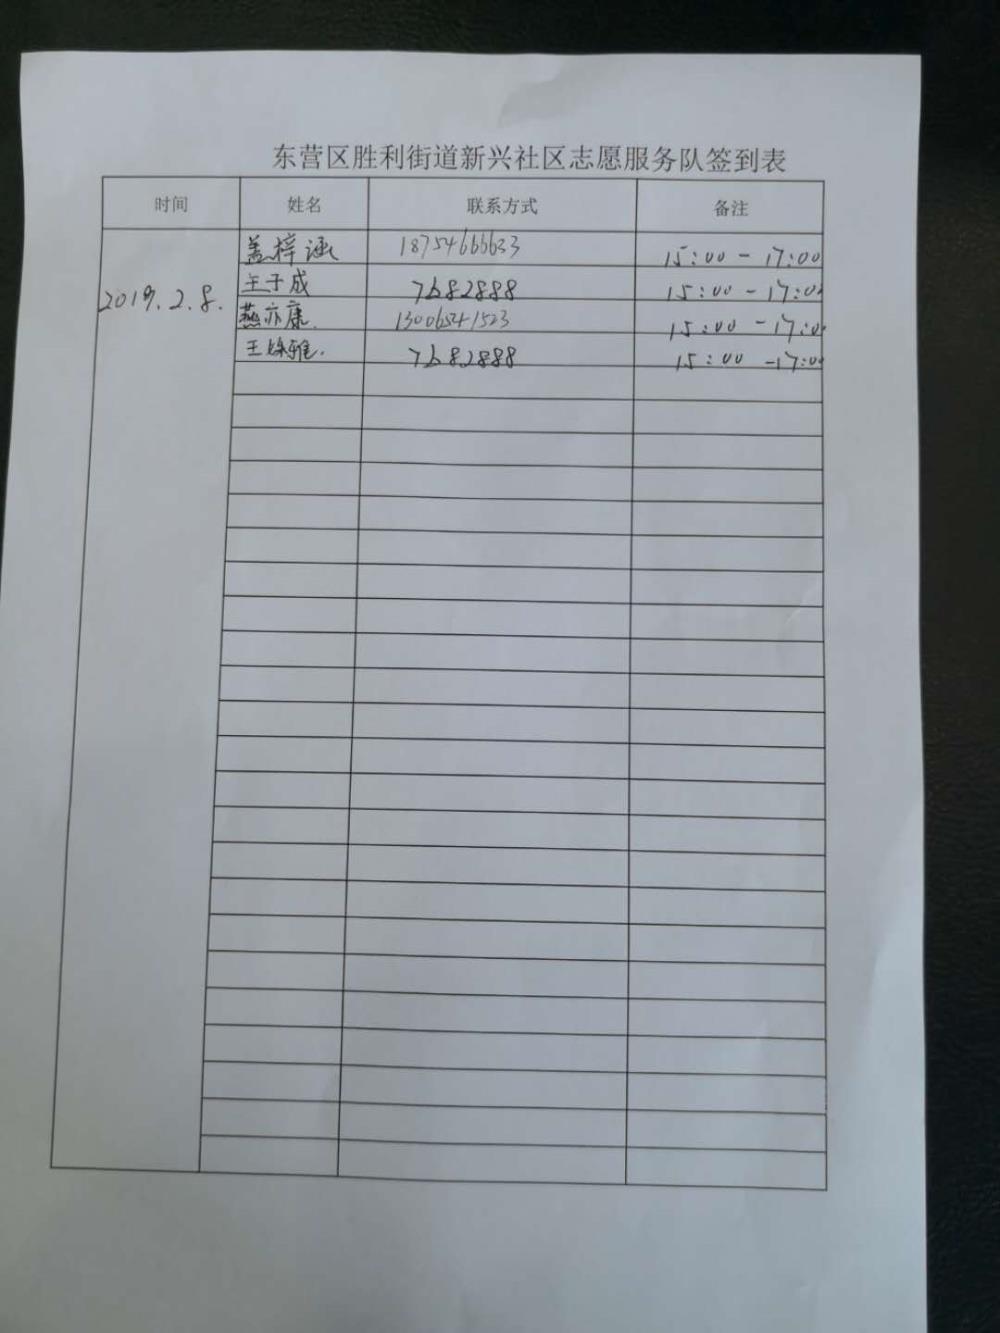 东营区胜利街道新兴社区志愿服务队签到表
时间 姓名 联系方式 备注
2019.2.8. 盖梓涵 18754666633 15:00-17:00
王子成 7682888 15:00-17:00
燕亦康. 13006541523 15:00-17:00
王 雅. 7682888 15:00-17:00